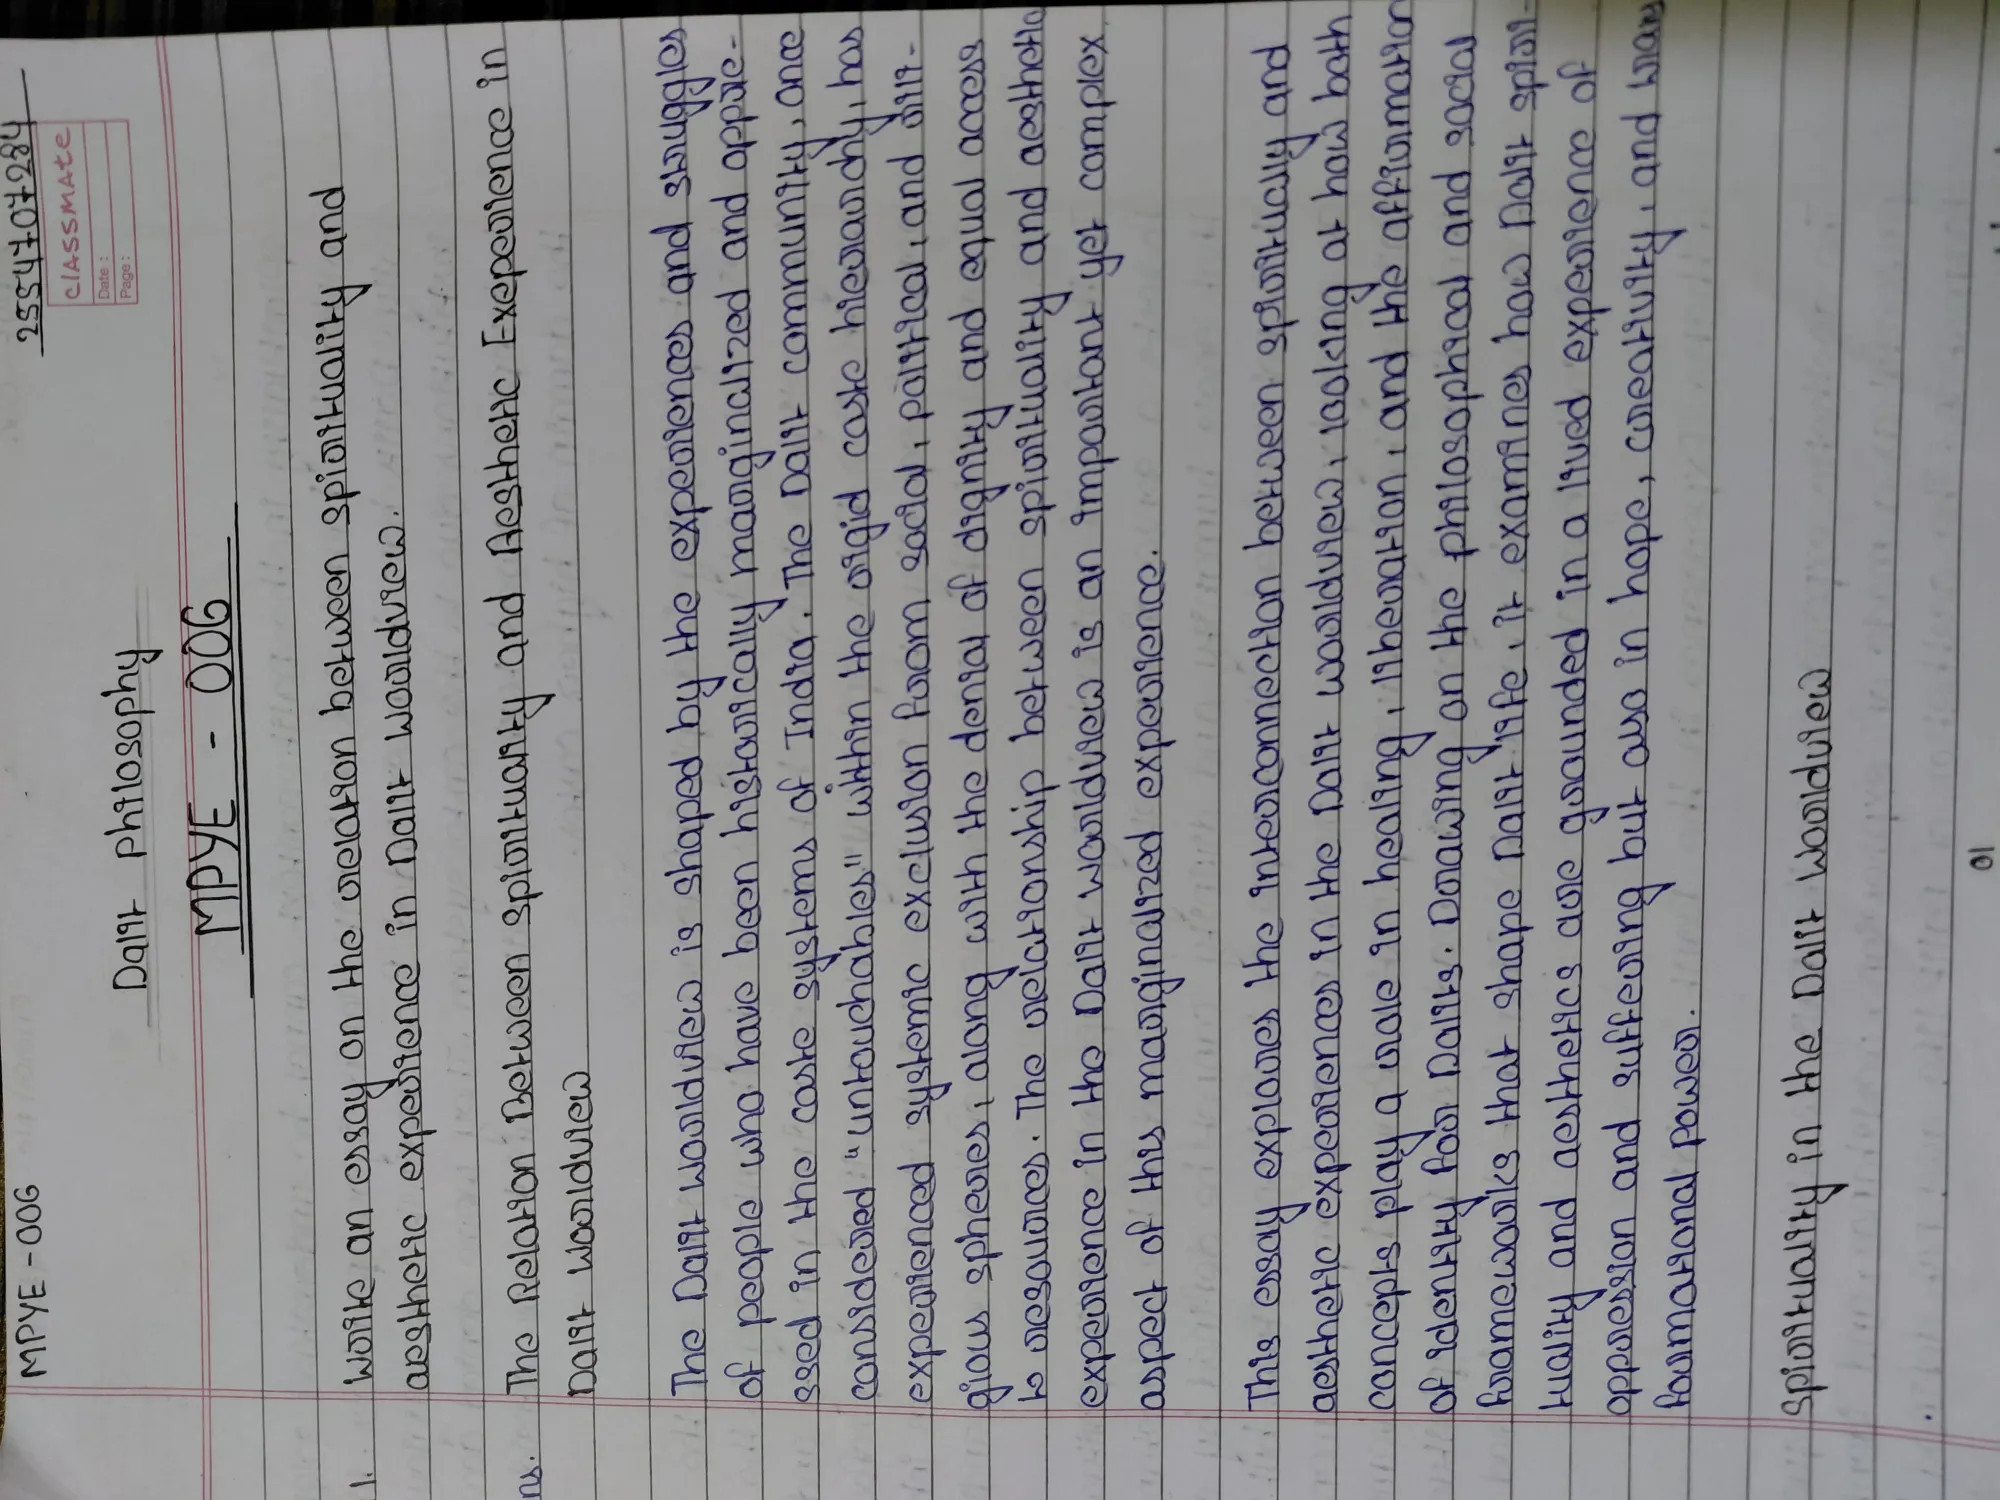 MPYE - 006
2554707284
classmate
Date :
Page :
Dalit Philosophy
MPYE - 006
1. Write an essay on the relation between spirituality and
aesthetic experience in Dalit worldview.
ns. The Relation Between Spirituality and Aesthetic Exeperience in
Dalit Worldview
The Dalit worldview is shaped by the experiences and struggles
of people who have been historically marginalized and oppre-
ssed in the caste systems of India. The Dalit community, once
considered "untouchables" within the rigid caste hierarchy, has
experienced systemic exclusion from social, political, and reli-
gious spheres, along with the denial of dignity and equal access
to resources. The relationship between spirituality and aesthetic
experience in the Dalit worldview is an important yet complex
aspect of this marginalized experience.
This essay explores the interconnection between spirituality and
aesthetic experiences in the Dalit worldview, looking at how both
concepts hold a role in healing, liberation, and the affirmation
of identity for Dalits. Drawing on the philosophical and social
frameworks that shape Dalit life, it examines how Dalit spiri-
tuality and aesthetics are grounded in a lived experience of
oppression and suffering but also in hope, creativity, and trans
formational power.
Spirituality in the Dalit Worldview
01